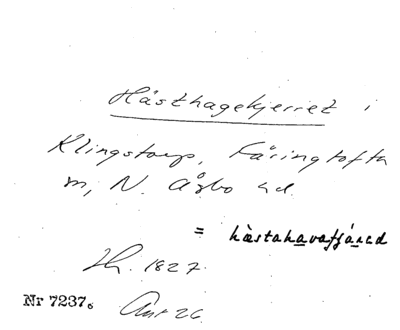 Hästhagekjerret i
Klingstorp, Färingtofta
sn, N. Åsbo hd.
= hæstahavafjáred
Th. 1827.
Nr 7237. Ant 26